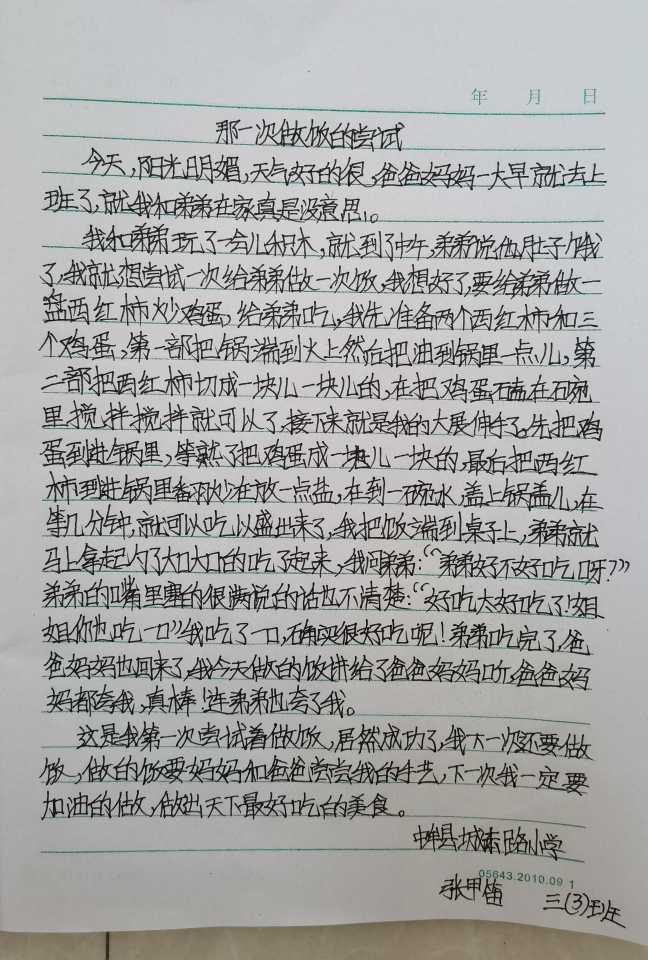 年 月 日
那一次做饭的尝试
今天,阳光明媚,天气好的很,爸爸妈妈一大早就去上
班了,就我和弟弟在家真是没意思。
我和弟弟玩了一会儿积木,就到了中午,弟弟说他肚子饿
了,我就想尝试一次给弟弟做一次饭,我想好了,要给弟弟做一
盘西红柿炒鸡蛋,给弟弟吃,我先准备两个西红柿和三
个鸡蛋,第一部把锅端到火上然后把油到锅里一点儿,第
二部把西红柿切成一块儿一块儿的,在把鸡蛋磕在碗
里搅拌搅拌就可以了,接下来就是我的大展伸手了。先把鸡
蛋到进锅里,等熟了把鸡蛋成一块儿一块的,最后把西红
柿到进锅里番羽炒在放一点盐,在到一碗水,盖上锅盖儿,在
等几分钟,就可以吃以盛出来了,我把饭端到桌子上,弟弟就
马上拿起勺了大口大口的吃了起来,我问弟弟:“弟弟好不好吃呀?”
弟弟的嘴里塞的很满说的话也不清楚:“好吃太好吃了!姐
姐你也吃一口”我吃了一口,确实很好吃呢!弟弟吃完了,爸
爸妈妈也回来了,我今天做的饭讲给了爸爸妈妈听,爸爸妈
妈都夸我,真棒!连弟弟也夸了我。
这是我第一次尝试着做饭,居然成功了,我下一次还要做
饭,做的饭要妈妈和爸爸尝尝我的手艺,下一次我一定要
加油的做,做出天下最好吃的美食。
中牟县城东路小学
05643.2010.09 1
张甲笛 三(3)班